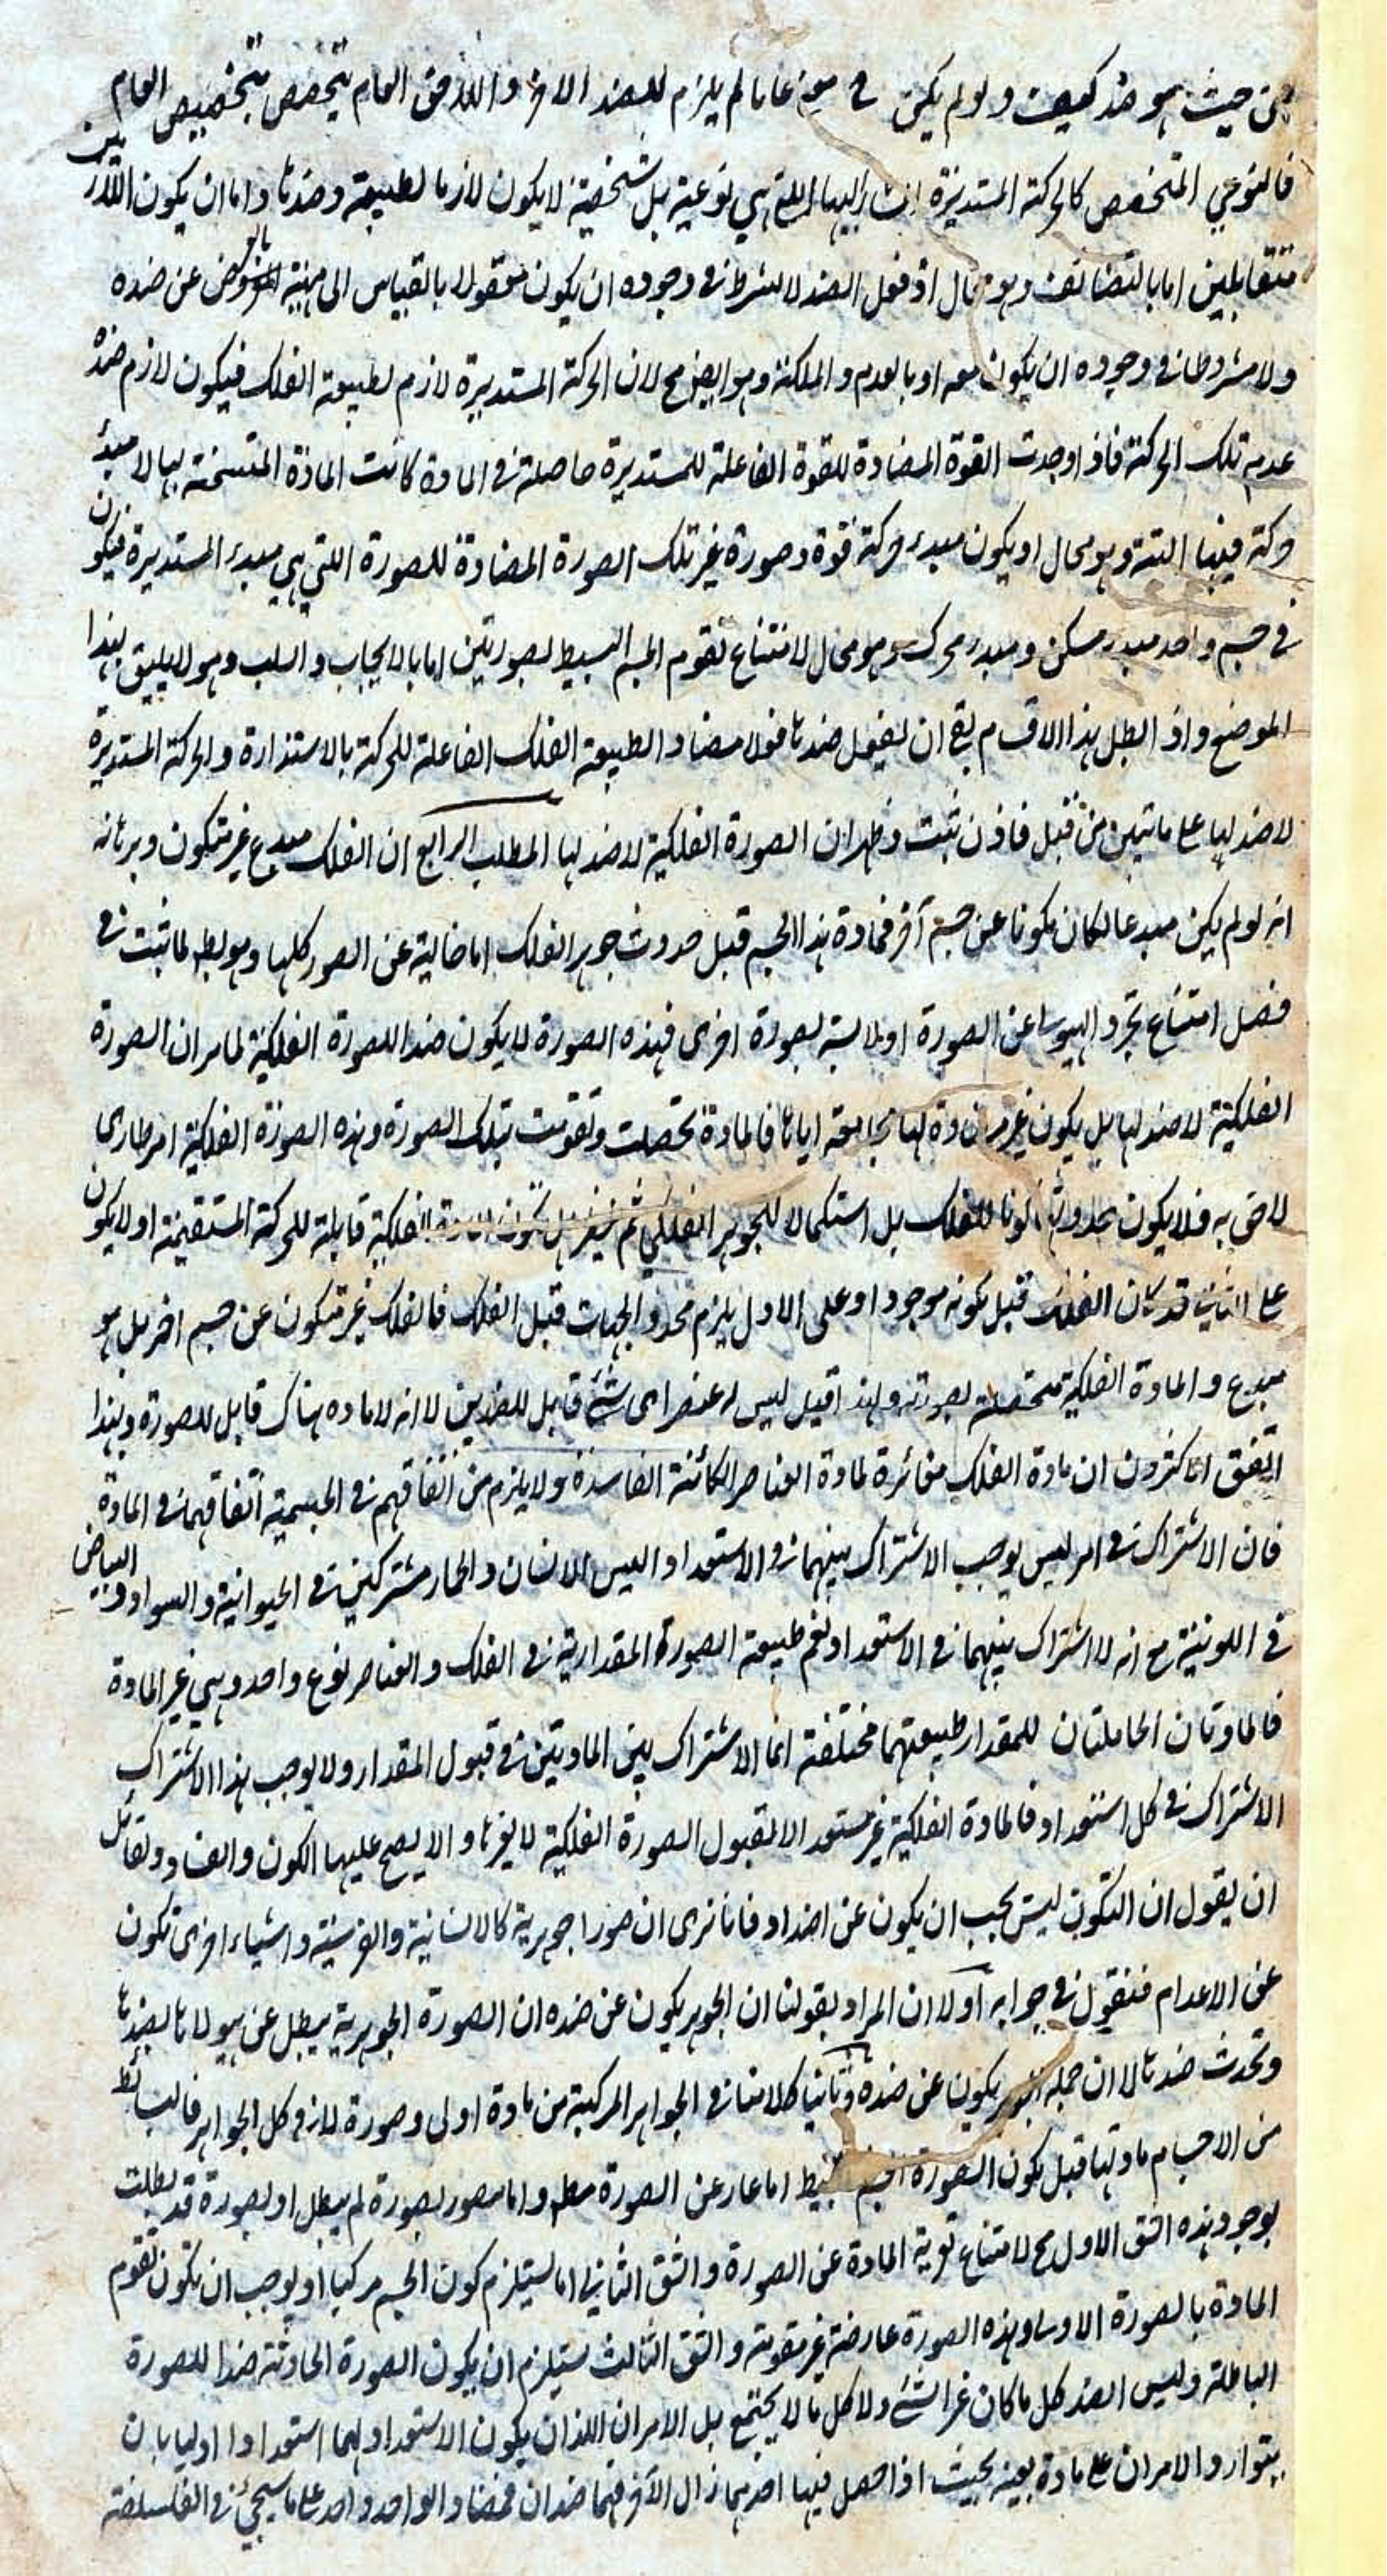 من حيث هو ضد كيف ولو لم يكن في موضوعا ما لم يلزم للضد الاخر واللاحق العام يتخصص بتخصيص العام
فالنوعي المتخصص كالحركة المستديرة المشار اليها اللتي هي نوعية بل شخصية لا يكون لازما لطبيعة وضدها واما ان يكون اللازمين
متقابلين اما بالتضايف وهو محال اذ فعل الضد لا يشترط في وجوده ان يكون معقولا بالقياس الى مهية بالعوض عن ضده
ولا مشروطا في وجوده ان يكون معه او بالعدم والملكة وهو ايضا مح لان الحركة المستديرة لازم لطبيعة الفلك فيكون لازم ضده
عدم تلك الحركة فاذا وجدت القوة المضادة للقوة الفاعلة للمستديرة حاصلة في المادة كانت المادة المتسخنة بها لا مبدء
حركة فيها البتة وهو محال او يكون مبدء حركة قوة وصورة غير تلك الصورة المضادة للصورة اللتي هي مبدء المستديرة فيكون
في جسم واحد مبدء مسكن ومبدء محرك وهو محال لامتناع تقوم الجسم البسيط بصورتين اما بالايجاب والسلب وهو لا يليق بهذا
الموضع واذ ابطل هذا الاقسام بقي ان لفعل ضدها فولا مضاد الطبيعة الفلك الفاعلة للحركة بالاستدارة والحركة المستديرة
لا ضد لها على ما تبين من قبل فاذن ثبت وظهر ان الصورة الفلكية لا ضد لها المطلب الرابع ان الفلك مبدع غير متكون وبرهانه
انه لو لم يكن مبدعا لكان مكونا عن جسم آخر فمادة هذا الجسم قبل حدوث جوهر الفلك اما خالية عن الصور كلها وهو بط لما ثبت في
فصل امتناع تجرد الهيولى عن الصورة او لابسة بصورة اخرى فهذه الصورة لا يكون ضدا للصورة الفلكية لما مر ان الصورة
الفلكية لا ضد لها بل يكون غير مضادة لها مجامعة اياها فالمادة تحصلت وتقومت بتلك الصورة وهذه الصورة الفلكية امر طارى
لاحق به فلا يكون بحدوثه كونا للفلك بل استكمالا للجوهر الفلكي ثم ننظر هل تكون المادة الفلكية قابلة للحركة المستقيمة او لا يكون
على الثاني قد كان الفلك قبل كونه موجودا وعلى الاول يلزم تحدد الجهات قبل الفلك فالفلك غير متكون عن جسم اخر بل هو
مبدع والمادة الفلكية متحصلة بصورته ولهذا قيل ليس له عنصر اى شئ قابل للضدين لا انه لا مادة هناك قابل للصورة ولهذا
اتفق الاكثرون ان مادة الفلك مغائرة لمادة العناصر الكائنة الفاسدة ولا يلزم من اتفاقهم في الجسمية اتفاقهما في المادة
فان الاشتراك في امر ليس يوجب الاشتراك بينهما في الاستعداد اليس الانسان والحمار مشتركين في الحيوانية والسواد والبياض
في اللونية مع انه لا اشتراك بينهما في الاستعداد نعم طبيعة الصورة المقدارية في الفلك والعناصر نوع واحد وهي غير المادة
فالمادتان الحاملتان للمقدار طبيعتهما مختلفة انما الاشتراك بين المادتين في قبول المقدار ولا يوجب هذا الاشتراك
الاشتراك في كل استعداد فالمادة الفلكية غير مستعد الا لقبول الصورة الفلكية لا يغرها والا يصح عليها الكون والفساد ولقائل
ان يقول ان التكون ليس يجب ان يكون عن اضداد فانا نرى ان صورا جوهرية كالانسانية والفرسية واشياء اخرى تكون
عن الاعدام فنقول في جوابه اولا ان المراد بقولنا ان الجوهر يكون عن ضده ان الصورة الجوهرية يبطل عن هيولاها بضدها
وتحدث ضدها لا ان جملة الجوهر يكون عن ضده وثانيا كلامنا في الجواهر المركبة من مادة اولى وصورة لا في كل الجواهر فالبسائط
من الاجسام مادتها قبل تكون الصورة الجسم البسيط اما عار عن الصورة مطم واما مصور بصورة لم يبطل او بصورة قد بطلت
بوجود هذه الشق الاول مح لامتناع تعرية المادة عن الصورة والشق الثاني اما يستلزم كون الجسم مركبا او يوجب ان تكون تقوم
المادة بالصورة الاولى وهذه الصورة عارضة غير مقومة والشق الثالث يستلزم ان يكون الصورة الحادثة ضدا للصورة
الباطلة وليس الضد كل ما كان غير الشئ ولا كل ما لا يجتمع بل الامران اللذان يكون الاستعداد لهما استعدادا اوليا بان
يتوارد الامران على مادة بعينه بحيث اذا حصل فيها احدهما زال الآخر فهما ضدان فمضاد الواحد واحد على ما سيجئ في الفلسلفة